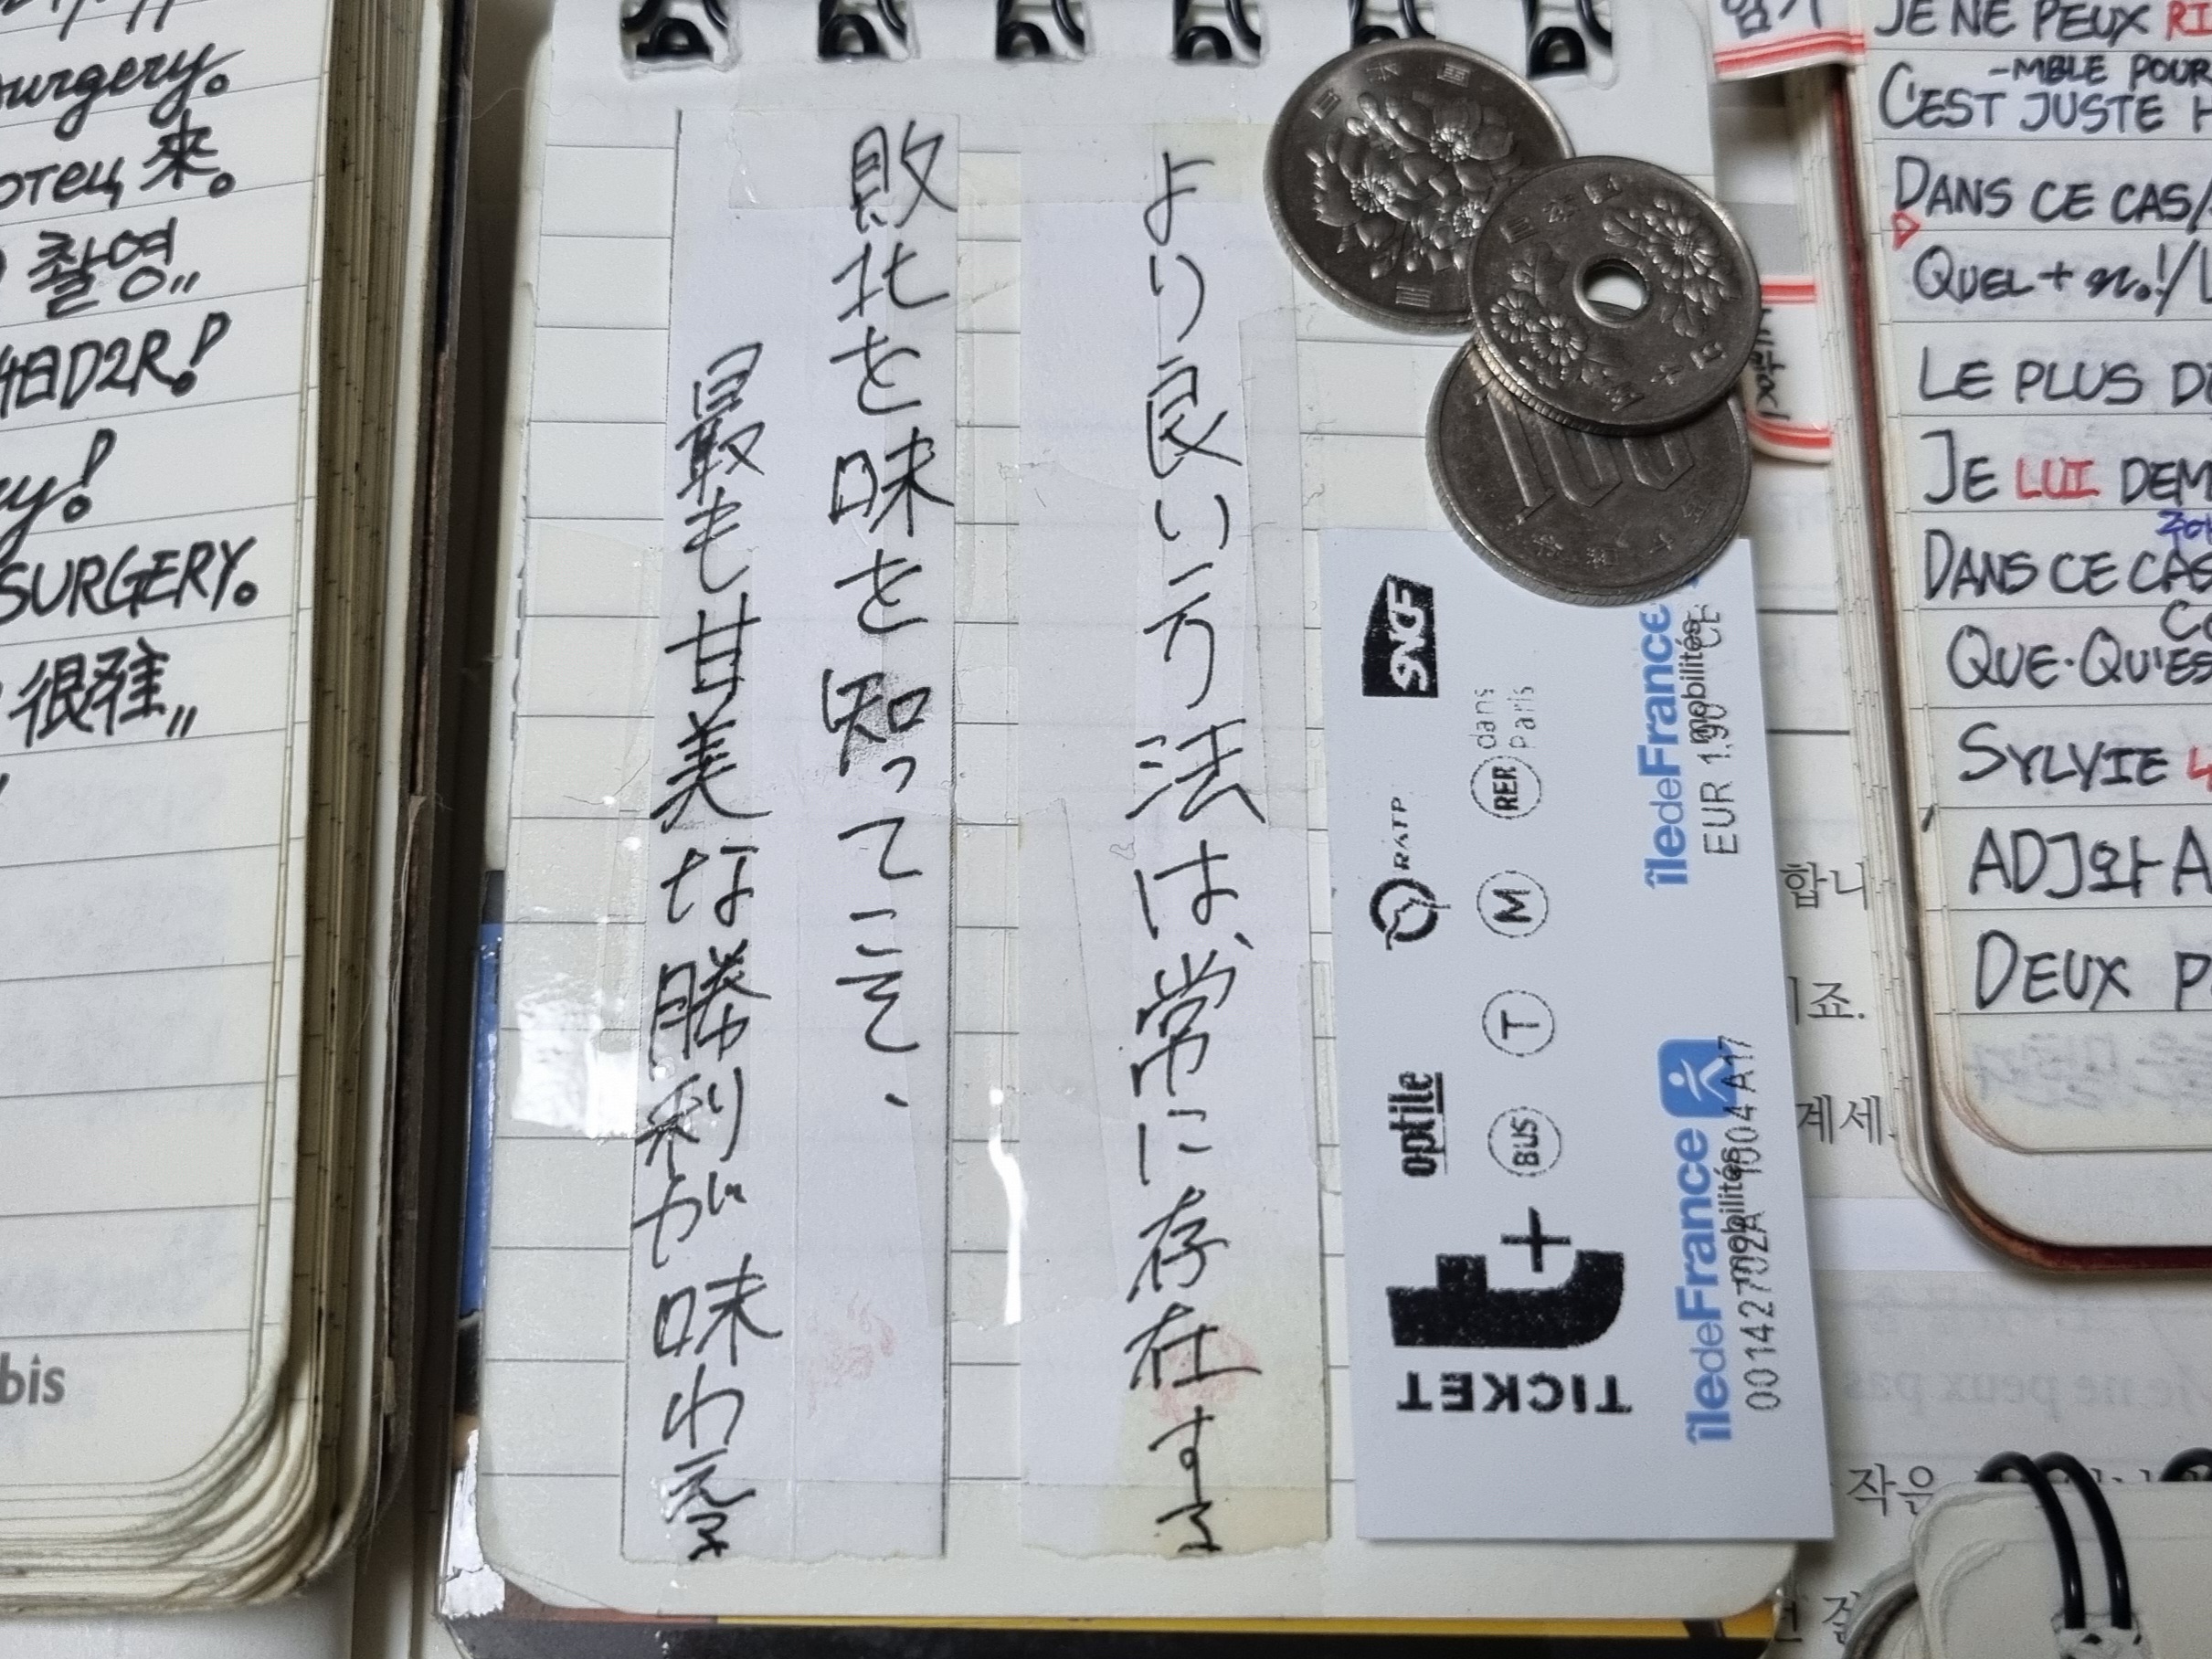 より良い方法は、常に存在する
敗北を味を知ってこそ、
最も甘美な勝利が味わえる
surgery。
отец 来。
촬영,,
4日D2R!
SURGERY。
很難,,
bis
日本国
百円
日本国
五十円
100
SNCF
RATP
optile
RER dans Paris
M
T
BUS
t+
TICKET
îledeFrance mobilités
EUR 1.90
îledeFrance mobilités
JE NE PEUX
-MBLE POUR
C'EST JUSTE
DANS CE CAS/
QUEL + n.!/
LE PLUS
JE LUI DEM
DANS CE CAS
QUE·QU'ES
SYLVIE
ADJ와 A
DEUX P
합니
죠.
계세.
작은